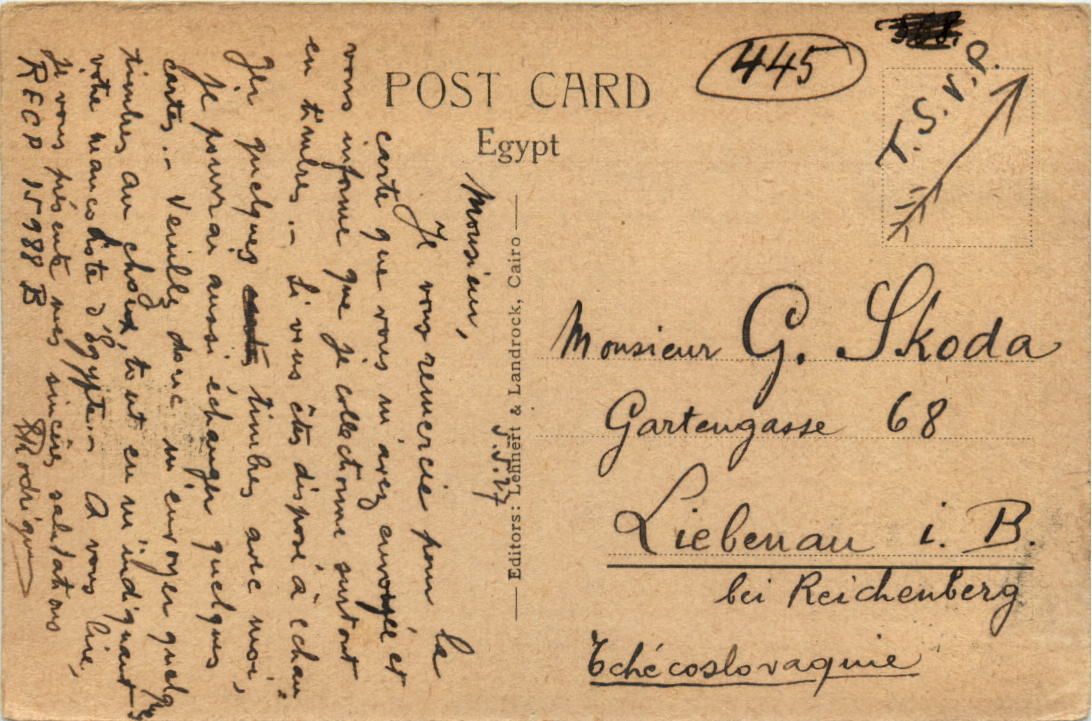 POST CARD
Egypt
445
T.S.V.P.
Editors: Lehnert & Landrock, Cairo
Monsieur,
Je vous remercie pour la
carte que vous m'avez envoyée et
vous informe que je collectionne surtout
en timbres.- Si vous êtes disposé à échan-
ger quelques timbres avec moi,
je pourrai aussi échanger quelques
cartes.- Veuillez donc m'envoyer quelques
timbres au choix, tout en m'indiquant
votre mancoliste d'Égypte.- A vous lire,
je vous présente mes sincères salutations
RECP 15988 B
Monsieur G. Skoda
Gartengasse 68
Liebenau i. B.
bei Reichenberg
Tchécoslovaquie